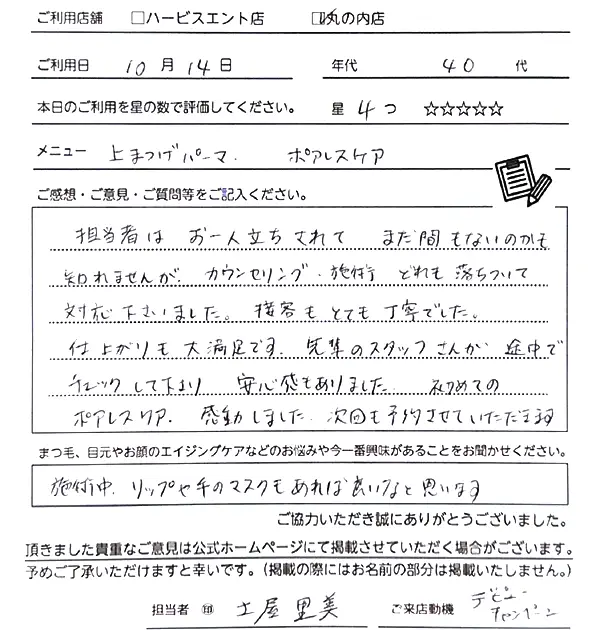 ご利用店舗 □ハービスエント店 ☑丸の内店
ご利用日 10月14日 年代 40代
本日のご利用を星の数で評価してください。 星 4つ ☆☆☆☆☆
メニュー 上まつげパーマ. ポアレスケア
ご感想・ご意見・ご質問等をご記入ください。
担当者は お一人立ちされて まだ間もないのかも
知れませんが、カウンセリング・施術 どれも落ちついて
対応下さいました。接客もとても丁寧でした。
仕上がりも大満足です. 先輩のスタッフさんが 途中で
チェックして下さり 安心感もありました. 初めての
ポアレスケア. 感動しました. 次回も予約させていただきます
まつ毛、目元やお顔のエイジングケアなどのお悩みや今一番興味があることをお聞かせください。
施術中、リップや手のマスクもあれば良いなと思います
ご協力いただき誠にありがとうございました。
頂きました貴重なご意見は公式ホームページにて掲載させていただく場合がございます。
予めご了承いただけますと幸いです。(掲載の際にはお名前の部分は掲載いたしません。)
担当者 ㊞ 土屋里美 ご来店動機 デビューキャンペーン